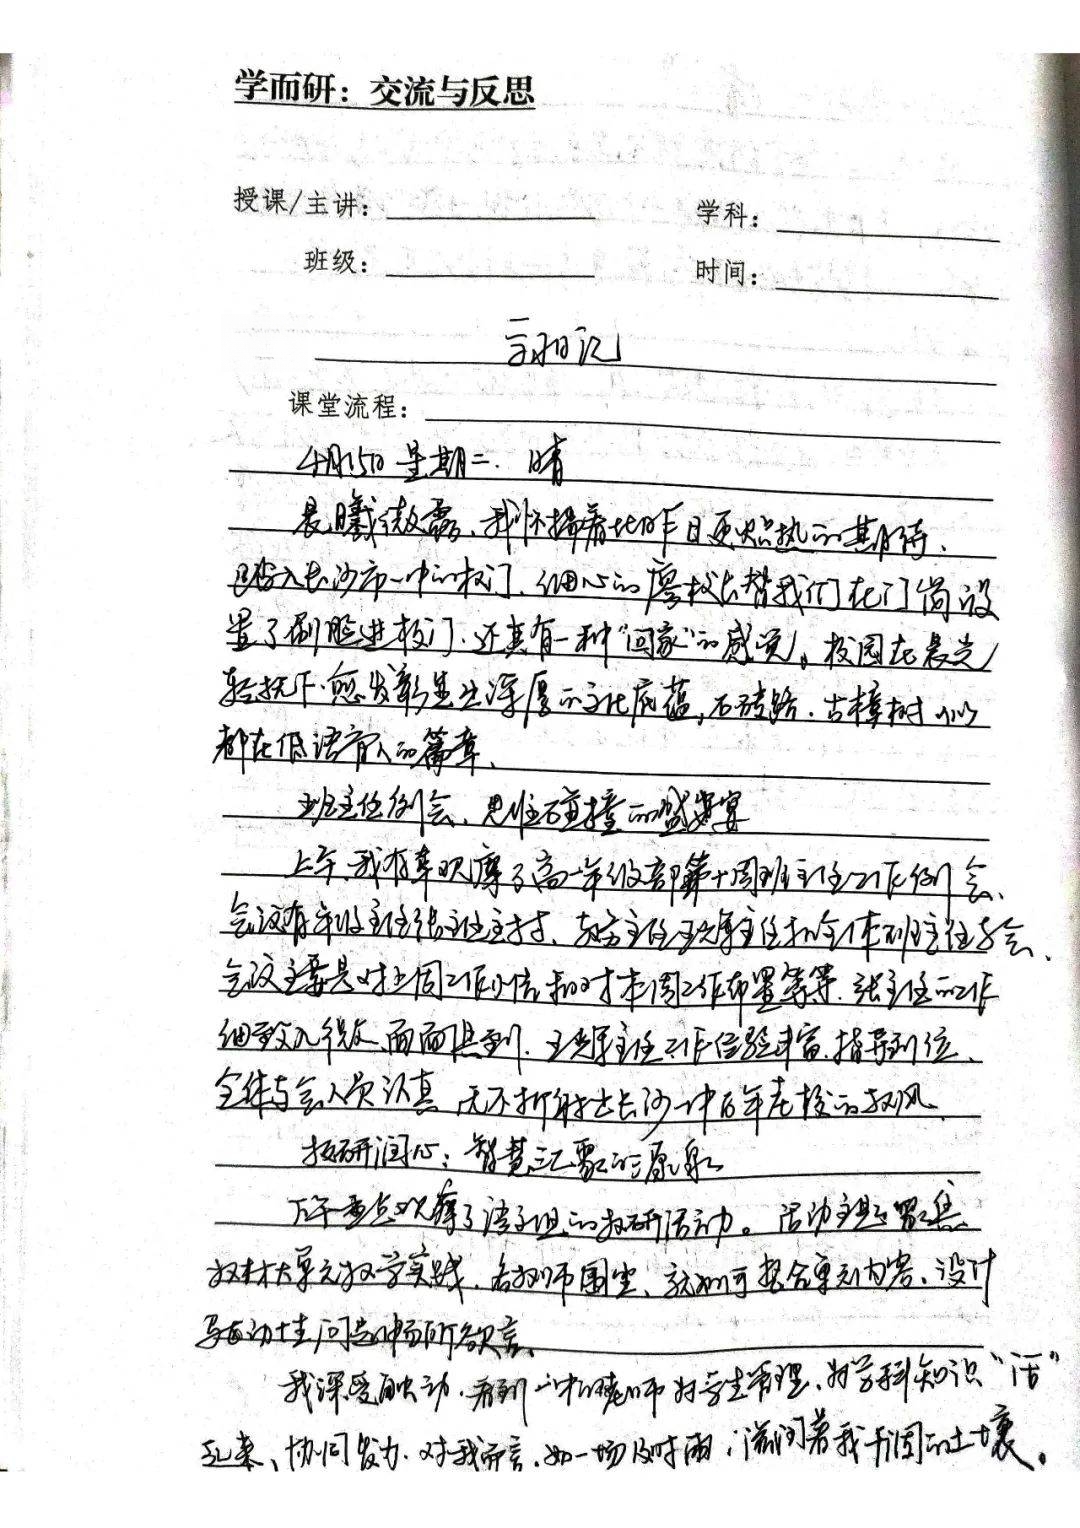 学而研：交流与反思
授课/主讲：
学科：
班级：
时间：
日记
课堂流程：
4月15日 星期二. 晴
晨曦微露、我怀揣着比昨日更炽热的期待、
踏入长沙市一中的校门、细心的廖校长替我们在门岗设
置了刷脸进校门、还真有一种“回家”的感觉。校园在晨光
轻抚下.愈发彰显出深厚的文化底蕴,石砖路.古樟树似
都在低语育人的篇章、
班主任例会、思维碰撞的盛宴
上午、我有幸观摩了高一年级部第十周班主任工作例会、
会议有年级主任张主任主持、主任和全体班主任与会、
会议主要是对上周工作小结和对本周工作布置等等.张主任的工作
细致入微、面面俱到.主任工作经验丰富.指导到位、
全体与会人员认真 无不折射出长沙一中百年老校的校风
教研润心：智慧汇聚的源泉
下午重点观摩了语文组的教研活动。活动主题聚焦
教材大单元教学实践、各教师围坐、就如何整合单元内容、设计
驱动性问题畅所欲言、
我深受触动.看到一中的老师对学生管理、对学科知识“活”
起来、协同发力.对我而言.如一场及时雨；滋润着我干涸的土壤。